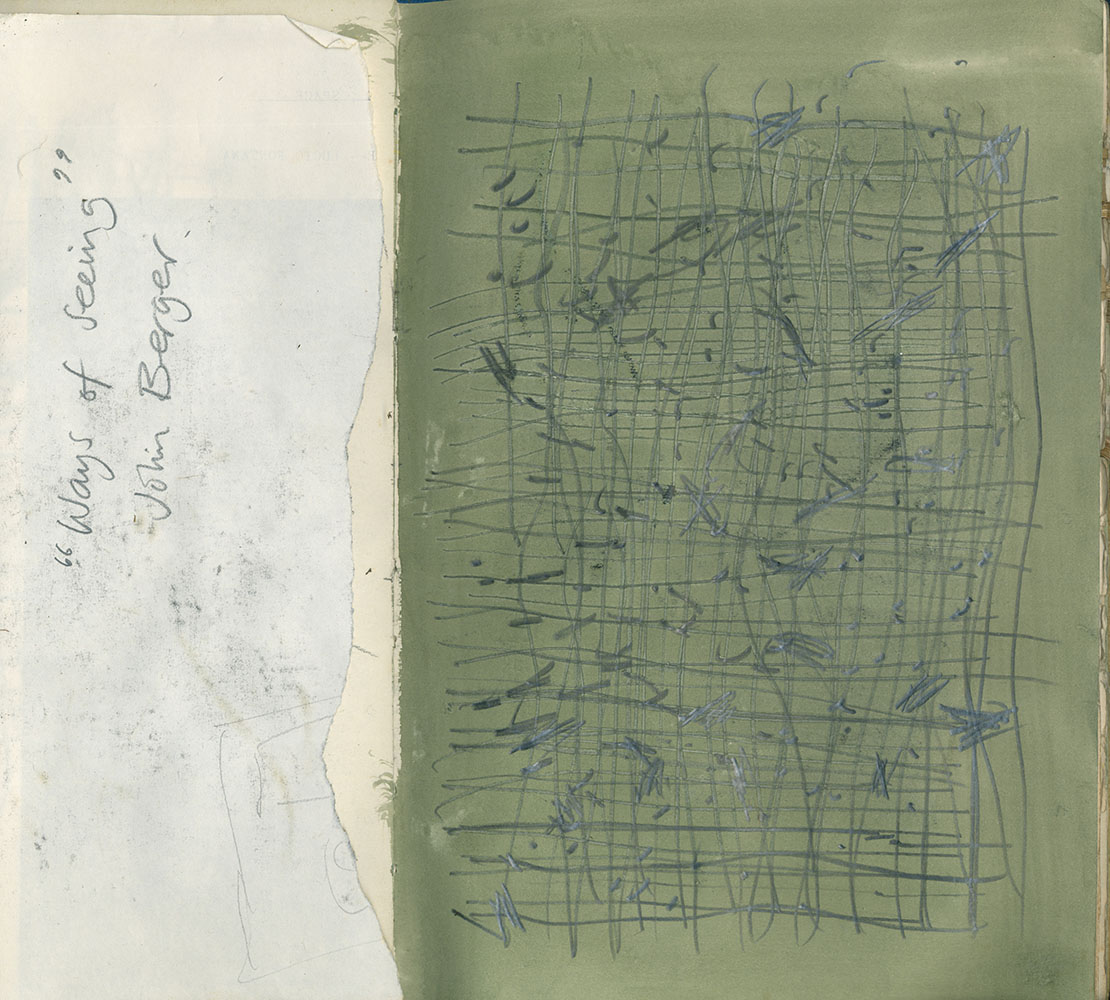 “Ways of Seeing”
John Berger